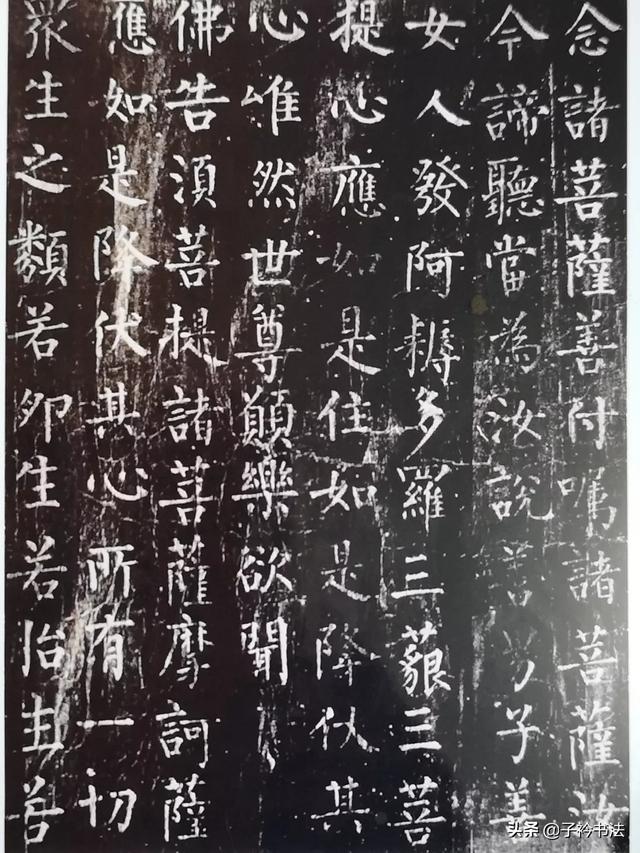 念諸菩薩善付囑諸菩薩汝
今諦聽當為汝說善男子善
女人發阿耨多羅三藐三菩
提心應如是住如是降伏其
心唯然世尊願樂欲聞
佛告須菩提諸菩薩摩訶薩
應如是降伏其心所有一切
眾生之類若卵生若胎生若
头条 @子衿书法